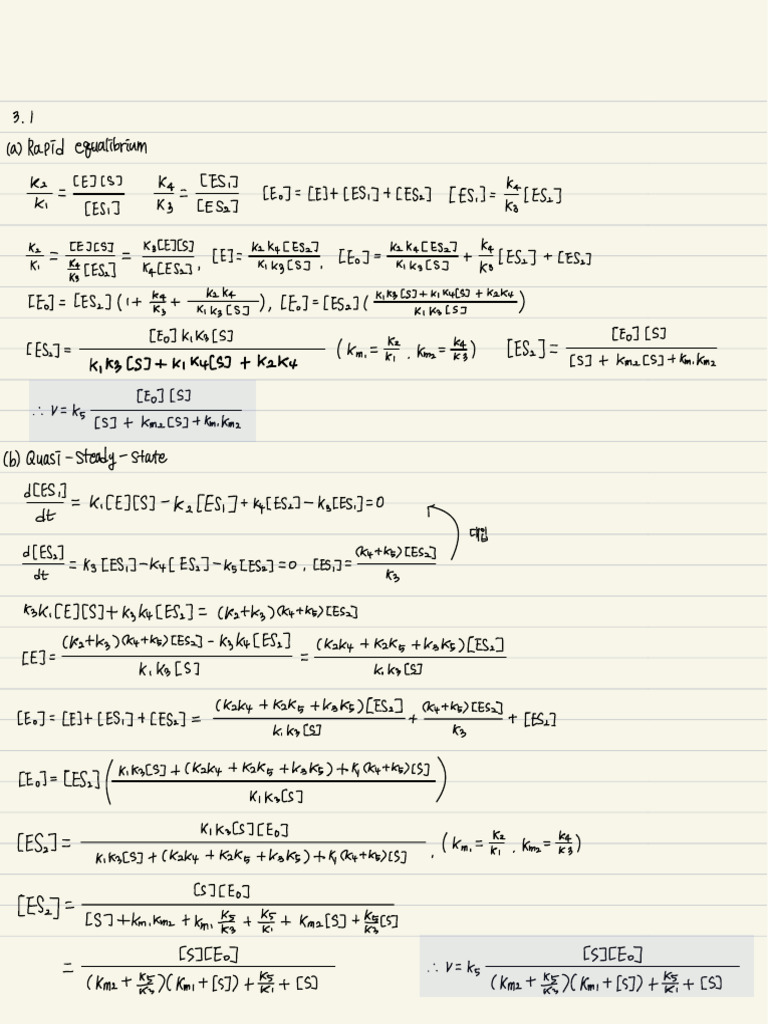 3.1
(a) Rapid equilibrium
k₂/k₁ = [E][S]/[ES₁]   k₄/k₃ = [ES₁]/[ES₂]   [E₀] = [E]+[ES₁]+[ES₂]   [ES₁] = k₄/k₃ [ES₂]
k₂/k₁ = [E][S]/(k₄/k₃ [ES₂]) = k₃[E][S]/k₄[ES₂], [E] = k₂k₄[ES₂]/k₁k₃[S], [E₀] = k₂k₄[ES₂]/k₁k₃[S] + k₄/k₃ [ES₂] + [ES₂]
[E₀] = [ES₂](1 + k₄/k₃ + k₂k₄/k₁k₃[S]), [E₀] = [ES₂]((k₁k₃[S]+k₁k₄[S]+k₂k₄)/k₁k₃[S])
[ES₂] = [E₀]k₁k₃[S]/(k₁k₃[S]+k₁k₄[S]+k₂k₄) (km₁ = k₂/k₁, km₂ = k₄/k₃)   [ES₂] = [E₀][S]/([S]+km₂[S]+km₁km₂)
∴ v = k₅ [E₀][S]/([S]+km₂[S]+km₁km₂)
(b) Quasi-Steady-State
d[ES₁]/dt = k₁[E][S] - k₂[ES₁] + k₄[ES₂] - k₃[ES₁] = 0
대입
d[ES₂]/dt = k₃[ES₁] - k₄[ES₂] - k₅[ES₂] = 0, [ES₁] = (k₄+k₅)[ES₂]/k₃
k₃k₁[E][S] + k₃k₄[ES₂] = (k₂+k₃)(k₄+k₅)[ES₂]
[E] = ((k₂+k₃)(k₄+k₅)[ES₂] - k₃k₄[ES₂])/k₁k₃[S] = (k₂k₄+k₂k₅+k₃k₅)[ES₂]/k₁k₃[S]
[E₀] = [E]+[ES₁]+[ES₂] = (k₂k₄+k₂k₅+k₃k₅)[ES₂]/k₁k₃[S] + (k₄+k₅)[ES₂]/k₃ + [ES₂]
[E₀] = [ES₂]((k₁k₃[S]+(k₂k₄+k₂k₅+k₃k₅)+k₁(k₄+k₅)[S])/k₁k₃[S])
[ES₂] = k₁k₃[S][E₀]/(k₁k₃[S]+(k₂k₄+k₂k₅+k₃k₅)+k₁(k₄+k₅)[S]), (km₁ = k₂/k₁, km₂ = k₄/k₃)
[ES₂] = [S][E₀]/([S]+km₁km₂+km₁ k₅/k₃ + k₅/k₁ + km₂[S] + k₅/k₃[S])
= [S][E₀]/((km₂+k₅/k₃)(km₁+[S])+k₅/k₁+[S])   ∴ v = k₅ [S][E₀]/((km₂+k₅/k₃)(km₁+[S])+k₅/k₁+[S])